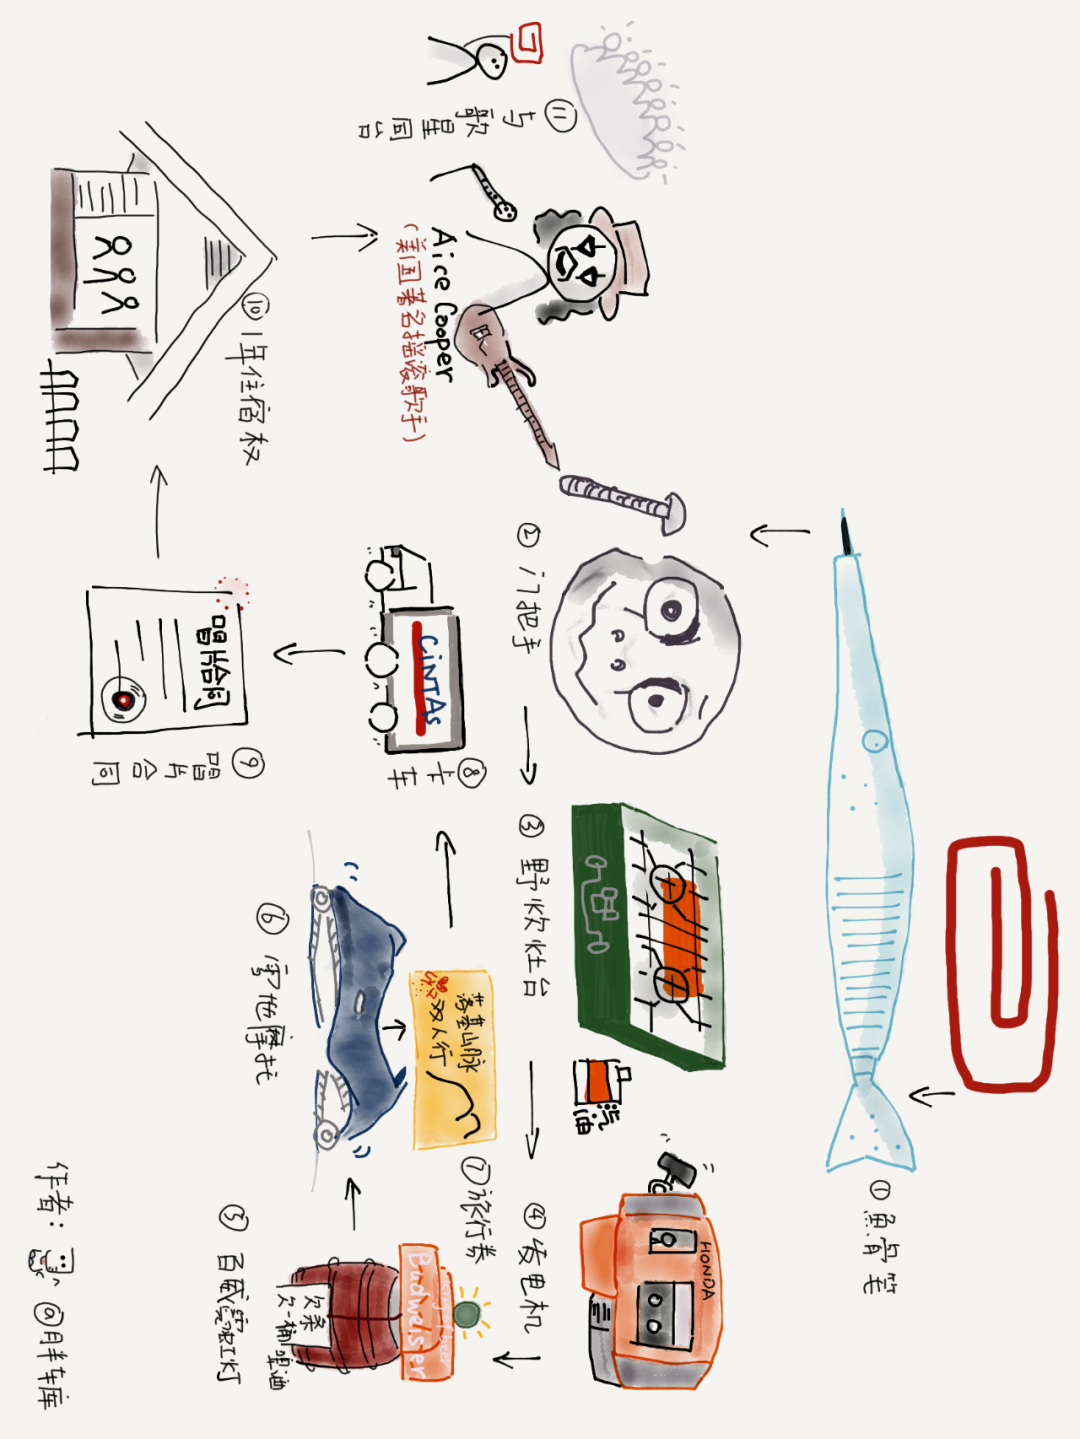 ① 魚骨笔
② 门把手
③ 野炊灶台
汽油
④ 发电机
HONDA
⑤ 百威霓虹灯
King of beer
Budweiser
欠条
欠一桶啤酒
⑥ 雪地摩托
⑦ 旅行券
落基山脉
双人行
⑧ 卡车
CiNTAs
⑨ 唱片合同
唱片合同
⑩ 1年住宿权
⑪ 与歌星同台
Aice Cooper
(美国著名摇滚歌手)
作者: @胖车库